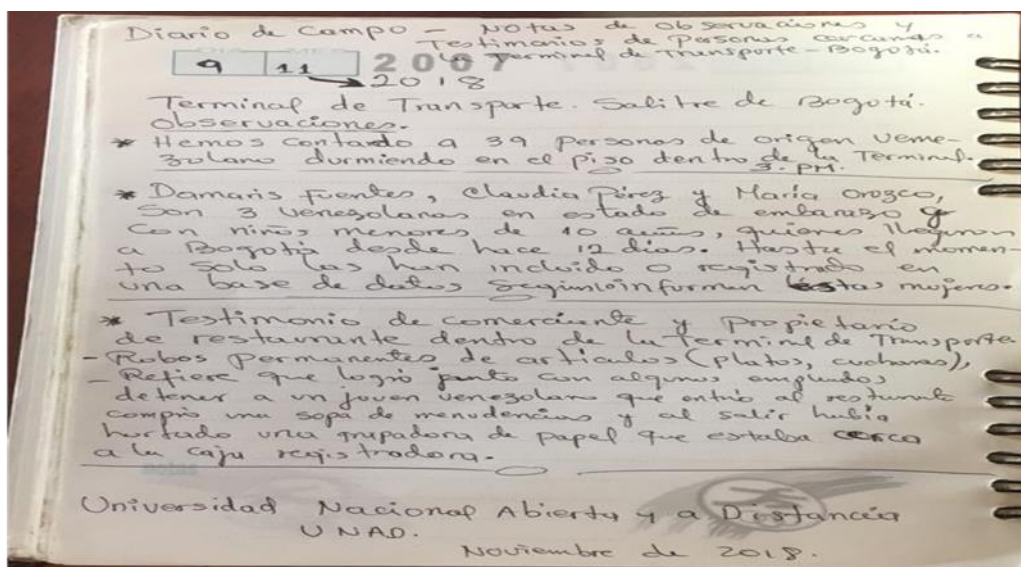 Diario de Campo - Notas de observaciones y
Testimonios de Personas cercanas a
la Terminal de Transporte - Bogotá.
9 11 2007
2018
Terminal de Transporte. Salitre de Bogotá.
Observaciones.
* Hemos contado a 39 personas de origen vene-
zolano durmiendo en el piso dentro de la Terminal.
3. PM.
* Damaris Fuentes, Claudia Pérez y María Orozco,
Son 3 venezolanas en estado de embarazo y
con niños menores de 10 años, quienes llegaron
a Bogotá desde hace 12 días. Hasta el momen-
to solo las han incluido o registrado en
una base de datos según informan estas mujeres.
* Testimonio de comerciante y propietario
de restaurante dentro de la terminal de Transporte.
- Robos permanentes de artículos (platos, cucharas),
- Refiere que logró junto con algunos empleados
detener a un joven venezolano que entró al restaurante
compró una sopa de menudencias y al salir había
hurtado una grapadora de papel que estaba cerca
a la caja registradora.
notas
Universidad Nacional Abierta y a Distancia
UNAD.
Noviembre de 2018.